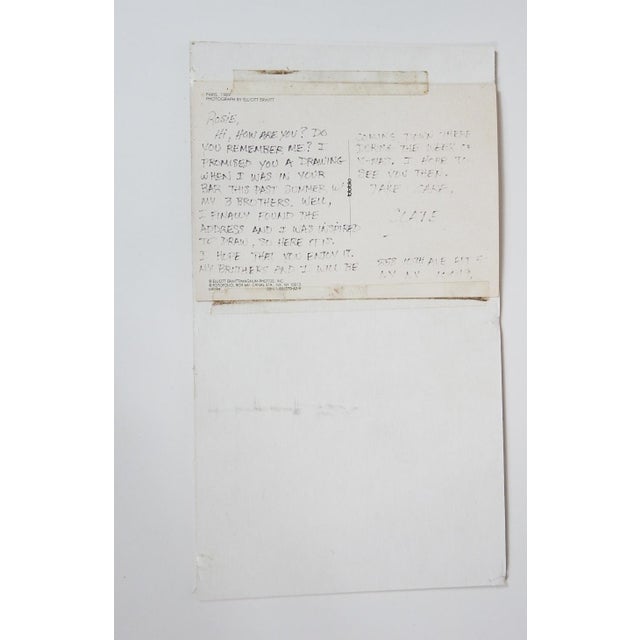 PARIS, 1989
PHOTOGRAPH BY ELLIOTT ERWITT
ROSIE,
HI, HOW ARE YOU? DO
YOU REMEMBER ME? I
PROMISED YOU A DRAWING
WHEN I WAS IN YOUR
BAR THIS PAST SUMMER W/
MY 3 BROTHERS. WELL,
I FINALLY FOUND THE
ADDRESS AND I WAS INSPIRED
TO DRAW, SO HERE IT IS.
I HOPE THAT YOU ENJOY IT.
MY BROTHERS AND I WILL BE
COMING DOWN THERE
THE WEEK OF
X-MAS. I HOPE TO
SEE YOU THEN.
TAKE CARE,
558 10TH AVE
NY, NY
fotofolio
© ELLIOTT ERWITT/MAGNUM PHOTOS, INC.
© FOTOFOLIO, BOX 661 CANAL STA., NY, NY 10013